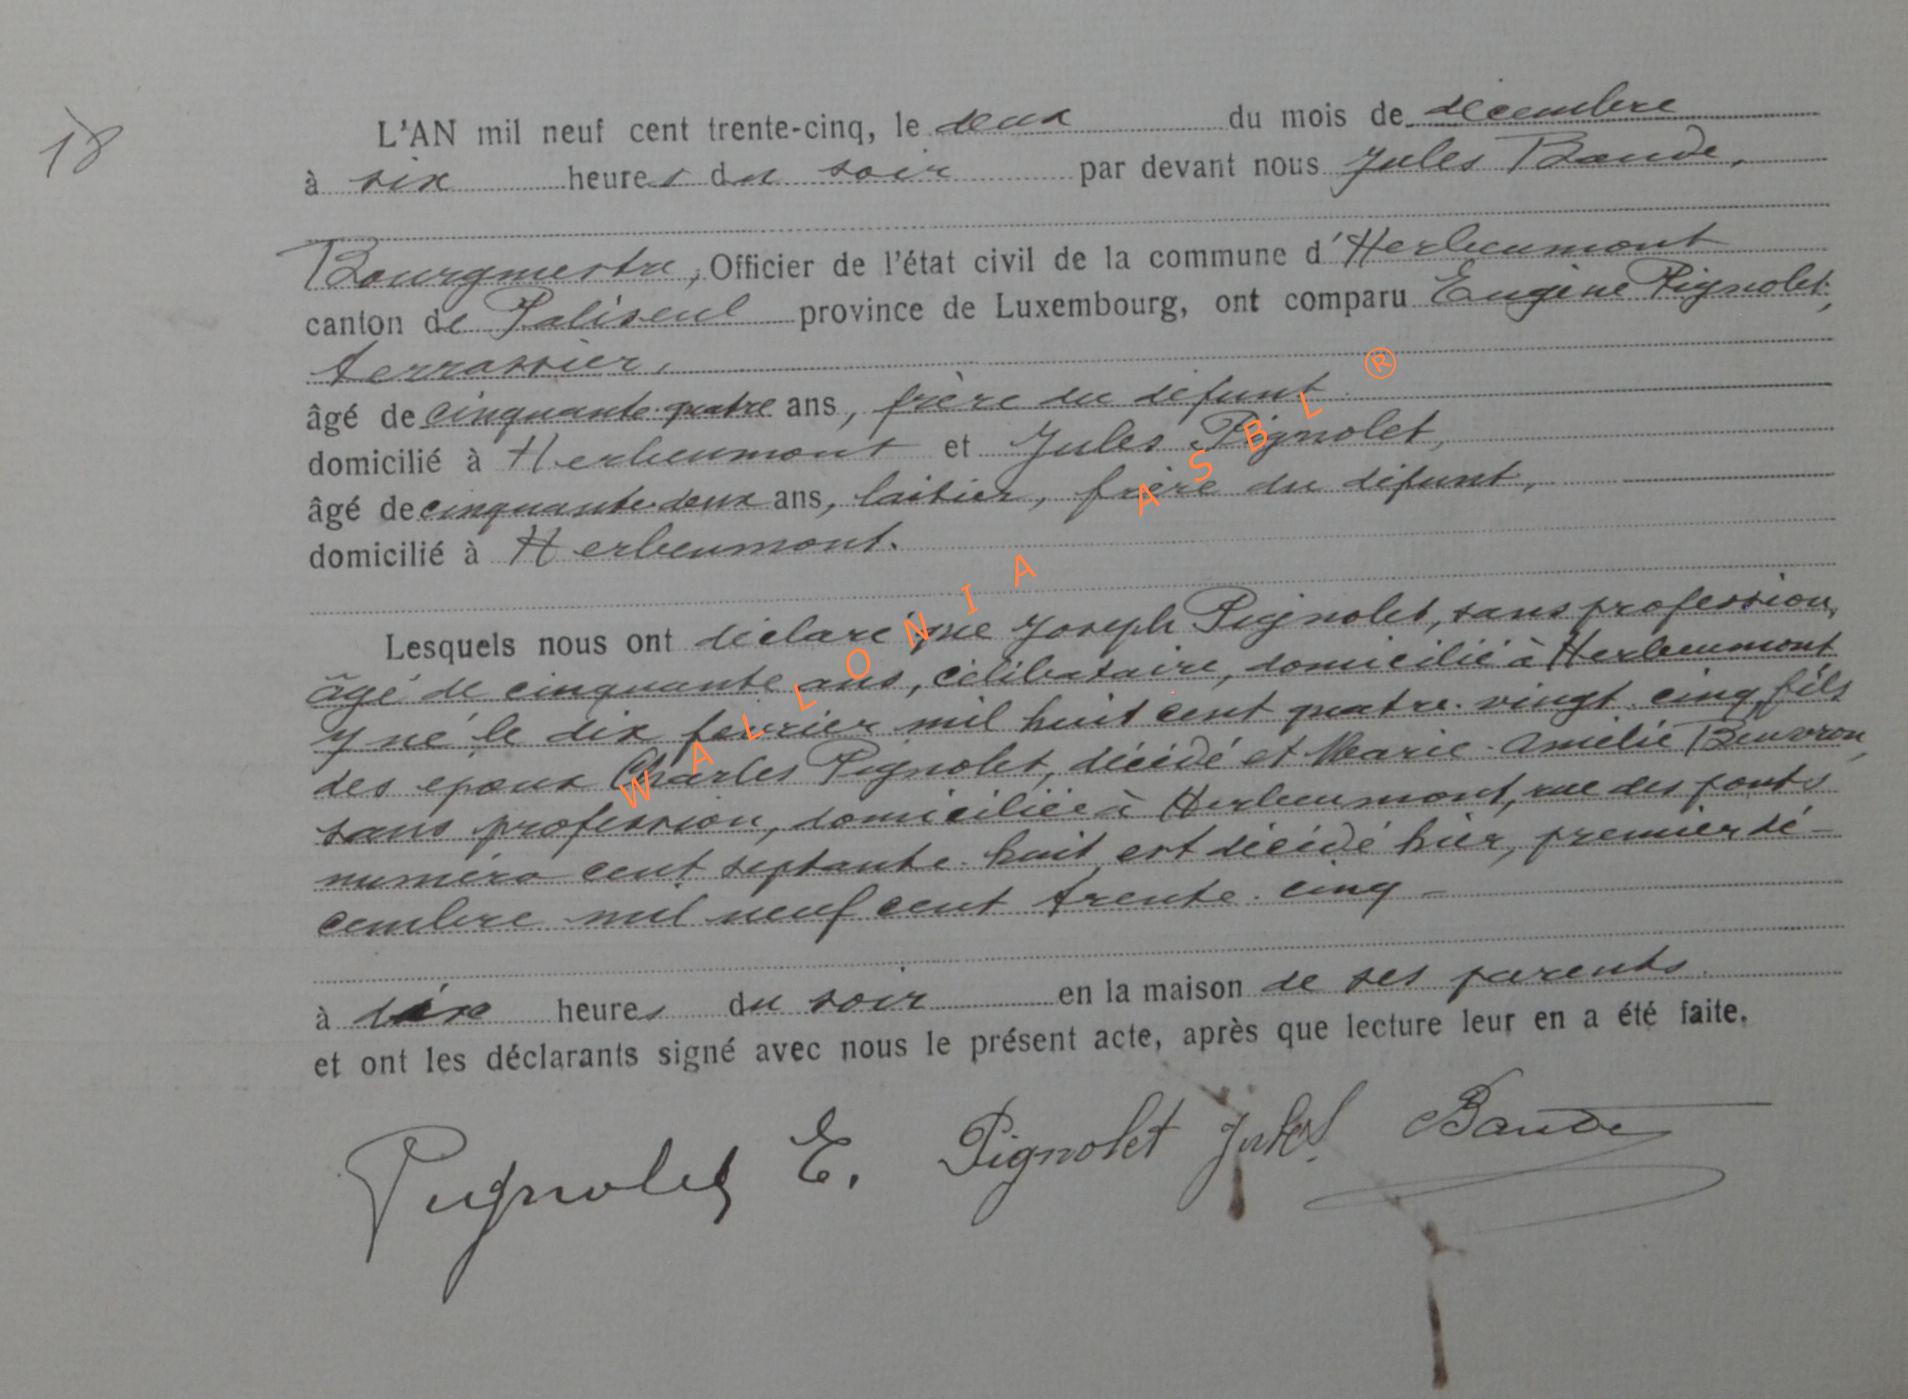 18
L'AN mil neuf cent trente-cinq, le deux du mois de décembre
à six heures du soir par devant nous Jules Baude,
Bourgmestre, Officier de l'état civil de la commune d'Herbeumont
canton de Paliseul province de Luxembourg, ont comparu Eugène Pignolet,
terrassier,
âgé de cinquante-quatre ans, frère du défunt
domicilié à Herbeumont et Jules Pignolet,
âgé de cinquante-deux ans, laitier, frère du défunt,
domicilié à Herbeumont.
Lesquels nous ont déclaré que Joseph Pignolet, sans profession,
âgé de cinquante ans, célibataire, domicilié à Herbeumont
y né le dix février mil huit cent quatre-vingt-cinq fils
des époux Charles Pignolet, décédé et Marie-Amélie Beuvron,
sans profession, domiciliée à Herbeumont, rue des ponts
numéro cent septante-huit, est décédé hier, premier dé-
cembre mil neuf cent trente-cinq -
à dix heures du soir en la maison de ses parents
et ont les déclarants signé avec nous le présent acte, après que lecture leur en a été faite.
Pignolet E. Pignolet Jules Baude
WALLONIA ASBL ®